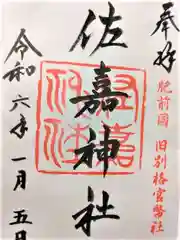 奉拝
肥前國
旧別格官幣社
佐嘉神社
佐嘉神社
令和六年一月五日